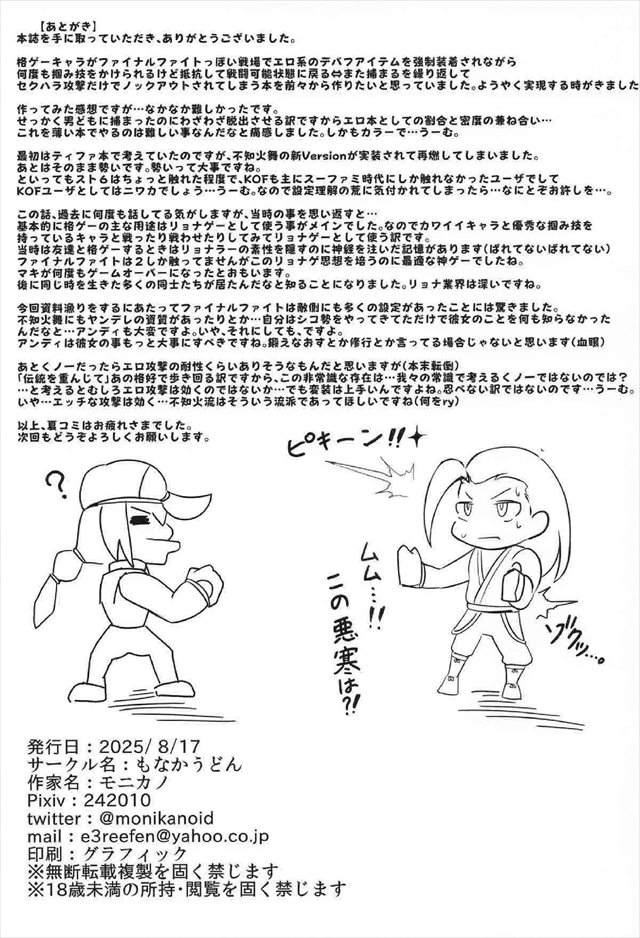 【あとがき】
本誌を手に取っていただき、ありがとうございました。
格ゲーキャラがファイナルファイトっぽい戦場でエロ系のデバフアイテムを強制装着されながら
何度も掴み技をかけられるけど抵抗して戦闘可能状態に戻る⇔また捕まるを繰り返して
セクハラ攻撃だけでノックアウトされてしまう本を前々から作りたいと思っていました。ようやく実現する時がきました
作ってみた感想ですが…なかなか難しかったです。
せっかく男どもに捕まったのにわざわざ脱出させる訳ですからエロ本としての割合と密度の兼ね合い…
これを薄い本でやるのは難しい事なんだなと痛感しました。しかもカラーで…うーむ。
最初はティファ本で考えていたのですが、不知火舞の新Versionが実装されて再燃してしまいました。
あとはそのまま勢いです。勢いって大事ですね。
といってもスト6はちょっと触れた程度で、KOFも主にスーファミ時代にしか触れなかったユーザでして
KOFユーザとしてはニワカでしょう…うーむ。なので設定理解の荒に気付かれてしまったら…なにとぞお許しを…。
この話、過去に何度も話してる気がしますが、当時の事を思い返すと…
基本的に格ゲーの主な用途はリョナゲーとして使う事がメインでした。なのでカワイイキャラと優秀な掴み技を
持っているキャラと戦ったり戦わせたりしてみてリョナゲーとして使う訳です。
当時は友達と格ゲーするときはリョナラーの素性を隠すのに神経を注いだ記憶があります(ばれてないばれてない)
ファイナルファイトは2しか触ってませんがこのリョナゲ思想を培うのに最適な神ゲーでしたね。
マキが何度もゲームオーバーになったとおもいます。
後に同じ時を生きた多くの同士たちが居たんだなと知ることになりました。リョナ業界は深いですね。
今回資料漁りをするにあたってファイナルファイトは敵側にも多くの設定があったことには驚きました。
不知火舞にもヤンデレの資質があったりとか…自分はシコ勢をやってきてただけで彼女のことを何も知らなかった
んだなと…アンディも大変ですよ。いや、それにしても、ですよ。
アンディは彼女の事もっと大事にすべきですね。鍛えなおすとか修行とか言ってる場合じゃないと思います(血眼)
あとくノ一だったらエロ攻撃の耐性くらいありそうなもんだと思いますが(本末転倒)
「伝統を重んじて」あの格好で歩き回る訳ですから、この非常識な存在は…我々の常識で考えるくノ一ではないのでは？
…と考えるとむしろエロ攻撃は効くのではないか…でも変装は上手いんですよね。忍べない訳ではないのです…うーむ。
いや…エッチな攻撃は効く…不知火流はそういう流派であってほしいですね(何をry)
以上、夏コミはお疲れさまでした。
次回もどうぞよろしくお願いします。
ピキーン!!
?
ムム…!!
この悪寒は?!
ゾクッ…。
発行日：2025/ 8/17
サークル名：もなかうどん
作家名：モニカノ
Pixiv：242010
twitter：@monikanoid
mail：e3reefen@yahoo.co.jp
印刷：グラフィック
※無断転載複製を固く禁じます
※18歳未満の所持・閲覧を固く禁じます